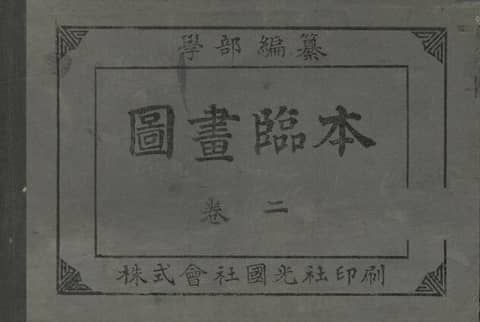 學部編纂
圖畫臨本
卷二
株式會社國光社印刷